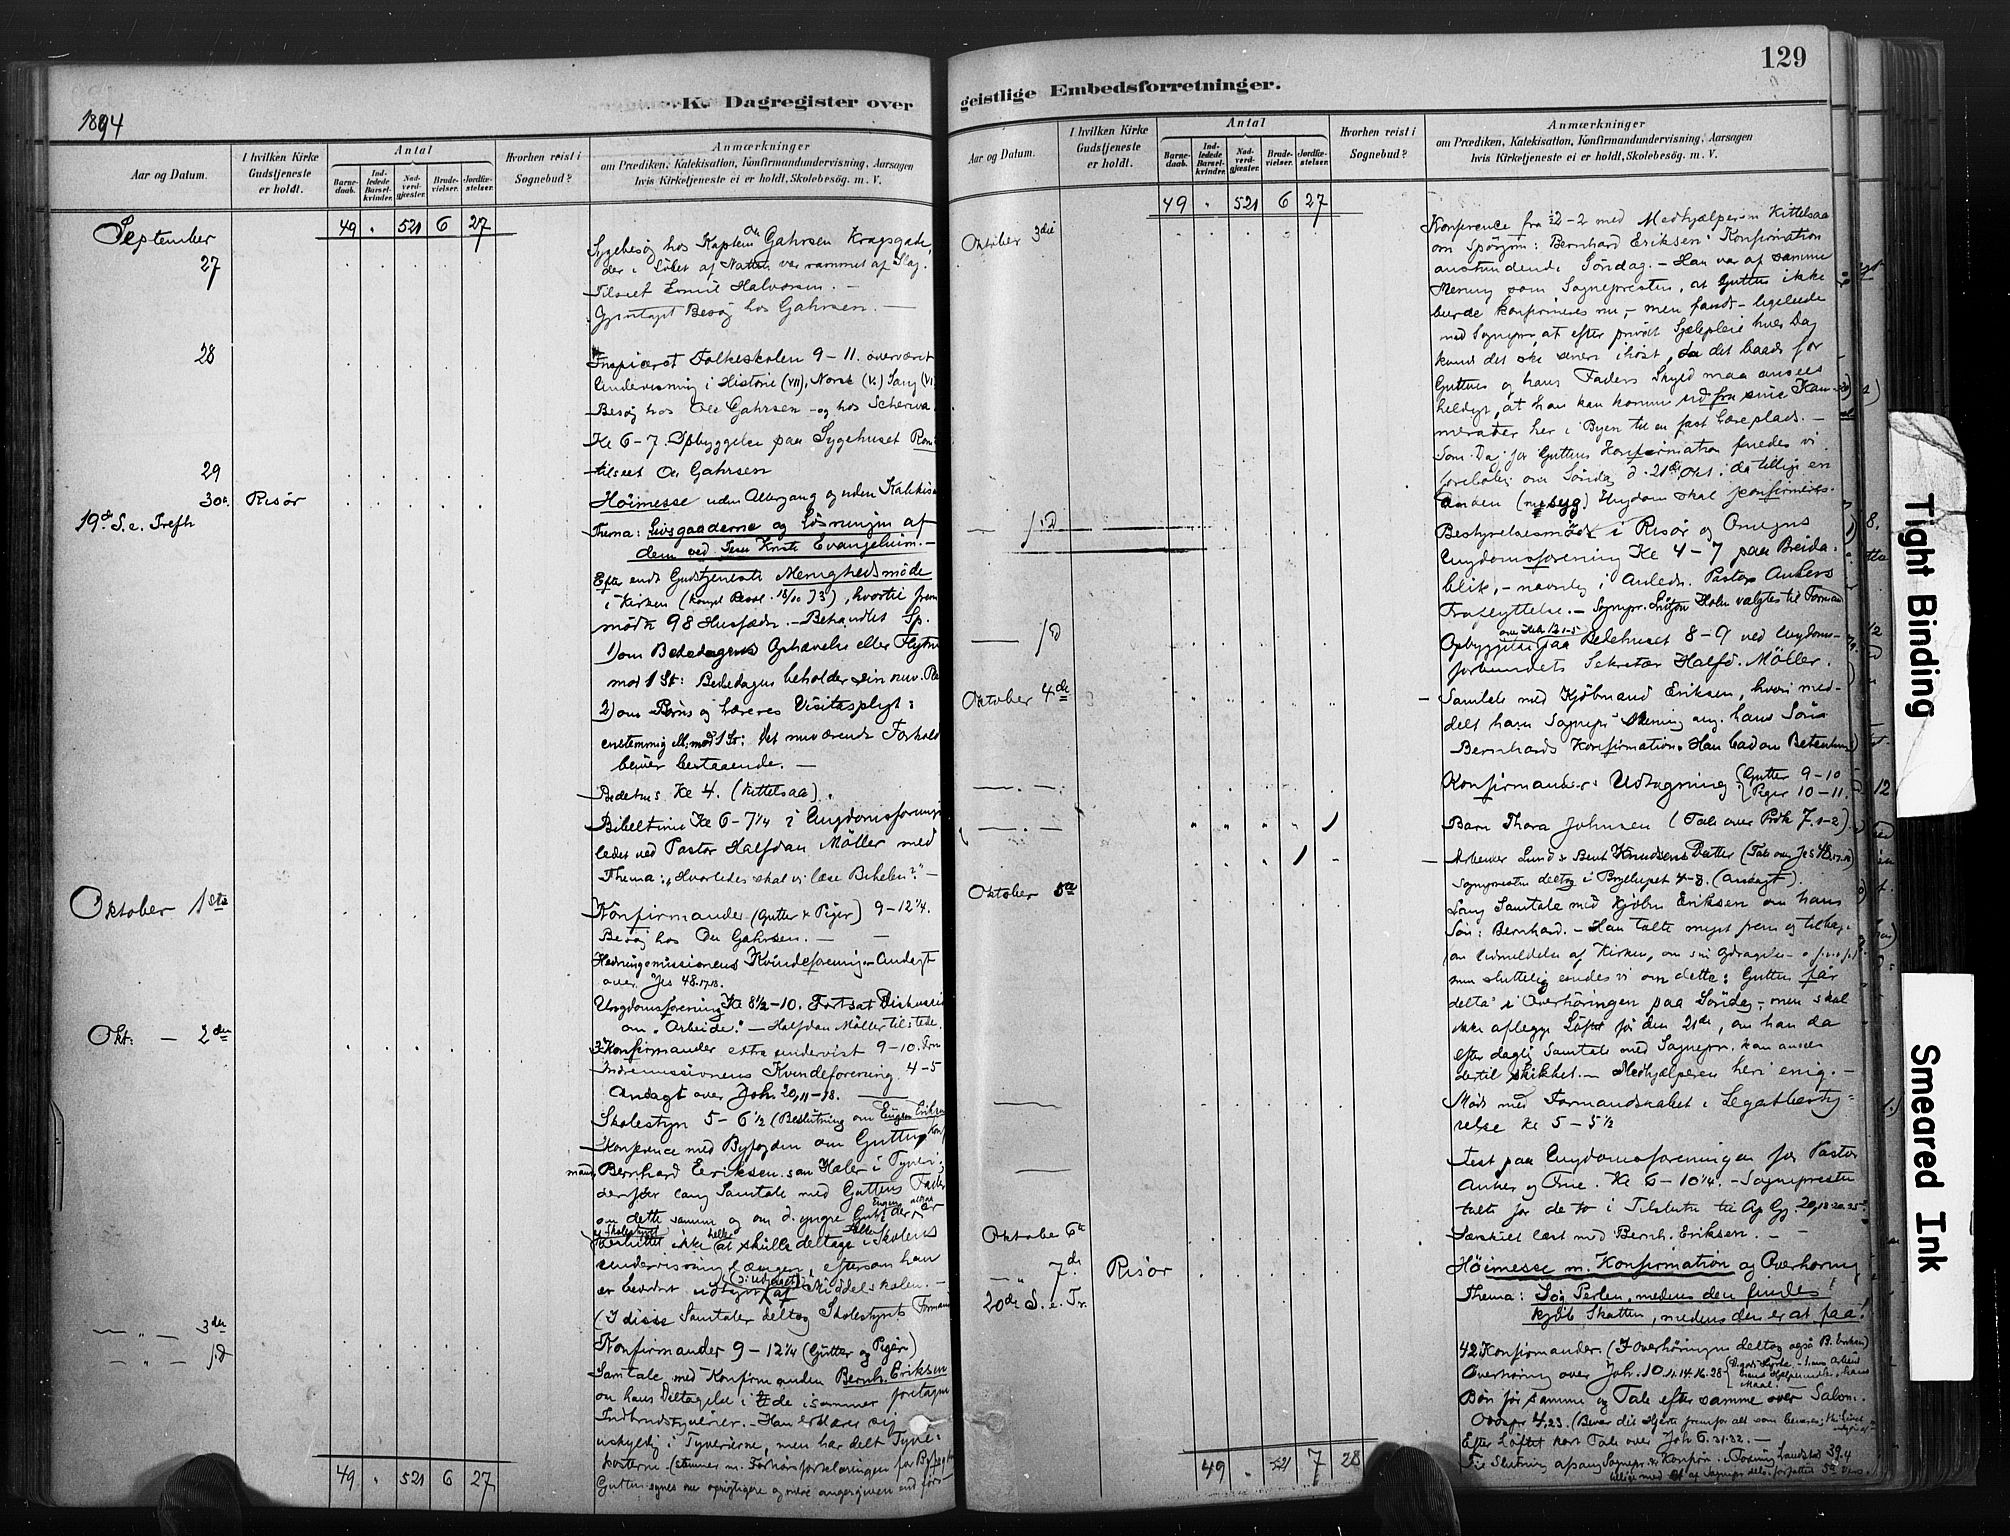 129
K. Dagregister over
geistlige Embedsforretninger.
1894
Aar og Datum.
I hvilken Kirke Gudstjeneste er holdt.
Antal
Barnedaab.
Indledede Barselkvinder.
Nadverdgjæster.
Brudevielser.
Jordfæstelser.
Hvorhen reist i Sognebud?
Anmærkninger
om Prædiken, Katekisation, Konfirmandundervisning, Aarsagen
hvis Kirketjeneste ei er holdt, Skolebesög. m. V.
49 " 521 6 27
September
27
Sygebesög hos Kaptein Gahrsen Kragsgade,
der i Löbet af Natten var rammet af Slag.
Tilseet Emil Halvorsen. -
Gjentaget Besög hos Gahrsen. -
28
Inspiceret Folkeskolen 9-11. overværet
Undervisning i Historie (VII), Norsk (V.) Sang (VI
Besög hos Ole Gahrsen - og hos
Kl 6-7. Opbyggelse paa Sygehuset
29
tilseet O. Gahrsen
30te Risör
Höimesse uden Altergang og uden
19de S. e. Trefh
Thema: Livsgaaderne og Lösningen af
dem ved Jesu Kristi Evangelium. -
Efter endt Gudstjeneste Menighedsmöde
i Kirken (Kongl Resol. 18/10 73), hvortil frem
mödte 98 Husfædre. - Behandlet Sp.
1) om Bededagens Ophævelse eller Flytn
mod 1 St: Bededagen beholder sin nuv.
2) om Börns og Læreres Visitaspligt:
enstemmig mod 1 St: det nuværende Forhold
bliver bestaaende. -
Bedehus Kl 4. (Kittelsaa).
Bibeltime Kl 6-7¼ i Ungdomsforening
ledet ved Pastor Halfdan Möller med
Thema: "Hvorledes skal vi læse Bibelen?" -
Oktober 1ste
Konfirmander (Gutter & Piger) 9-12¼.
Besög hos Ole Gahrsen. -
Hedningemissionens Kvindeforening - Andagt
over Jes 48.17.18.
Ungdomsforening Kl 8½-10. Fortsat Diskussion
om "Arbeide." - Halfdan Möller tilstede.
Okt: - 2den
3 Konfirmander extra undervist 9-10.
Indremissionens Kvindeforening 4-5
Andagt over Joh 20,11-18.
Skolestyr 5-6½ (Beslutning om Eugen Eriksen
Konference med Byfogden om Gutten Konf
mand Bernhard Eriksen som Hæler i Tyveri;
derfor lang Samtale med Guttens Fader
om dette samme og om d. yngre Gut
ikke heller at skulle deltage i Skolens
undervisning længer, eftersom han
er bevidst udvist af Middelskolen. -
(I disse Samtaler deltog Skolestyrets Formand
- " - 3die
Konfirmander 9-12¼ (Gutter og Piger)
- " - s.D
Samtale med Konfirmanden Bernh. Eriksen
om hans Deltagelse i de i sommer foretagne
Indbrudstyverier. - Han erklærer sig
uskyldig i Tyverierne, men har delt Tyve-
kosterne. - (stemmer m. Forhörsforklaringen for Byfogden
Gutten synes nu oprigtigere og mere angergiven end för
49 " 521 6 27
Aar og Datum.
I hvilken Kirke Gudstjeneste er holdt.
Antal
Barnedaab.
Indledede Barselkvinder.
Nadverdgjæster.
Brudevielser.
Jordfæstelser.
Hvorhen reist i Sognebud?
Anmærkninger
om Prædiken, Katekisation, Konfirmandundervisning, Aarsagen
hvis Kirketjeneste ei er holdt, Skolebesög. m. V.
49 " 521 6 27
Oktober 3die
Konference fra 12-2 med Medhjælperen Kittelsaa
om Spörgsm: Bernhard Eriksens Konfirmation
anstundende Söndag. - Han var af samme
Mening som Sognepresten, at Gutten ikke
burde konfirmeres nu, - men fandt - ligeledes
med Sognepr. at efter privat Sjælepleie hver Dag
kunde det ske senere ihöst, da det baade for
Guttens og hans Faders Skyld maa ansees
heldigt, at han kan komme ud fra sine Kam-
merater her i Byen til en fast Læreplads. -
Som Dag for Guttens Konfirmation enedes vi
foreløbig om Söndag d. 21de Okt: da tillige en
anden (nu syg) Ungdom skal konfirmeres.
- s.D
Bestyrelsesmöde i Risör og Omegns
Ungdomsforening Kl 4-7 paa Breida-
blik, - navnlig i Anledn. Pastor Ankers
Fraflyttelse. - Sognepr. Lützow Holm valgtes til Formand
- s.D
Opbyggelse paa Bedehuset 8-9 ved Ungdoms-
forbundets Sekretær Halfd. Möller.
Oktober 4de
Samtale med Kjöbmand Eriksen, hvori med-
delt ham Sognepr's Mening ang. hans Söns
Bernhards Konfirmation. Han bad om Betænkn)
- . - .
Konfirmanders Udtagning: (Gutter 9-10
(Piger 10-11.
- . -
Barn Thora Johnsen (Tale over Prdk 7.1-2).
Arbeider Lund & Bernt Knudsens Datter (Tale over Jes 48.17.18)
Sognepresten deltog i Bryllupet 4-8. (Andagt).
Oktober 5te
Lang Samtale med Kjöbm Eriksen om hans
Sön: Bernhard. - Han talte meget frem og tilbage
om Udmeldelse af Kirken, om sin Opdragelse - o. s. v.
men sluttelig enedes vi om dette: Gutten får
delta i Overhöringen paa Söndag - men skal
ikke aflegge Löftet för den 21de, om han da
efter daglig Samtale med Sognepr. kan ansees
dertil skikket. - Medhjælperen heri enig. -
Möde med Formandskabet i Legatbesty-
relse Kl 5-5½
Fest paa Ungdomsforeningen for Pastor
Anker og Frue. Kl 6-10¼. - Sognepresten
talte for de to i Tilslutn til Ap Gj. 20,18-20.25
Oktober 6te
Særskilt læst med Bernh. Eriksen. -
- " 7de Risör
Höimesse m. Konfirmation og Overhöring
20de S. e. Tr.
Thema: Søg Perlen, medens den findes!
Kjöb Skatten, medens den er at faa!
42 Konfirmander. (I Overhöringen deltog også B. Eriksen)
Overhöring over Joh. 10.11.14.16.28
Bön för samme og Tale efter samme over Salom.
Ordspr 4,23. (Bevar dit Hjerte fremfor alt som bevares;
Efter Löftet kort Tale over Joh 6.31.32. -
49 " 521 7 28
Tight Binding
Smeared Ink